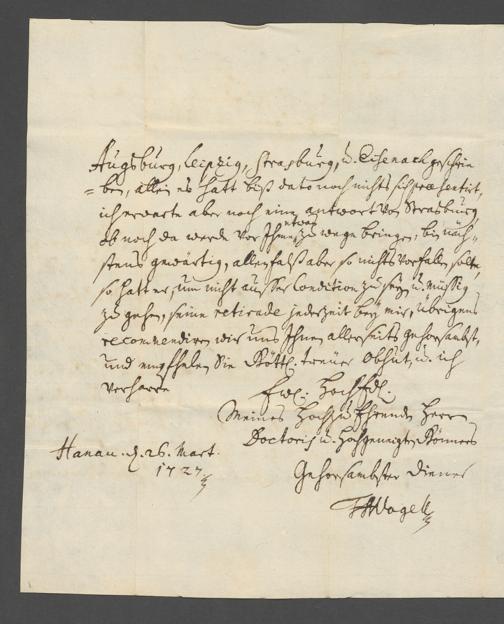 Augsburg, Leipzig, Straßburg, u. Eisenach geschrie
=ben, allein es hatt biß dato noch nichts sich præsentirt,
ich erwarte aber noch eine antwort von Straßburg,
ob noch da werde vor Ihme etwas zu wege bringen, bin näch-
stens gewärtig, allenfalß aber so nichts vorfallen solte,
so hatt er, um nicht ausser Condition zu seyn u. müssig
zu gehen, seine retirade jederzeit bey mir, übrigens
recommendiren wir uns Ihnen allerseits gehorsambst,
und empfhelen Sie Göttl. treuer Obhut, u. ich
verharre
Ewl. HochEdl.
Meines Hochzu Ehrenden Herrn
Doctoris u. Hochgeneigten Gönners
Hanau. d. 26. Mart.
1727
Gehorsambster Diener
Vogell